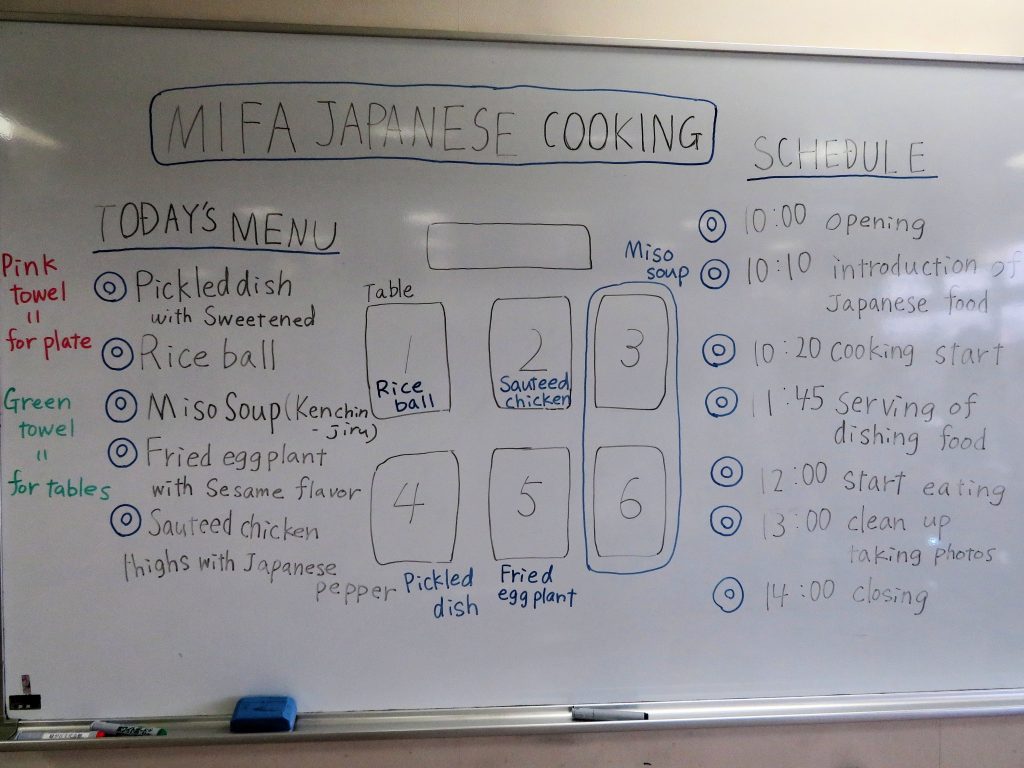 MIFA JAPANESE COOKING
TODAY'S MENU
Pickled dish
with Sweetened
Rice ball
Miso Soup (Kenchin
-jiru)
Fried eggplant
with Sesame flavor
Sauteed chicken
thighs with Japanese
pepper
Pink
towel
=
for plate
Green
towel
=
for tables
Table
1
Rice
ball
2
Sauteed
chicken
Miso
soup
3
4
Pickled
dish
5
Fried
eggplant
6
SCHEDULE
10:00 opening
10:10 introduction of
Japanese food
10:20 cooking start
11:45 serving of
dishing food
12:00 start eating
13:00 clean up
taking photos
14:00 closing